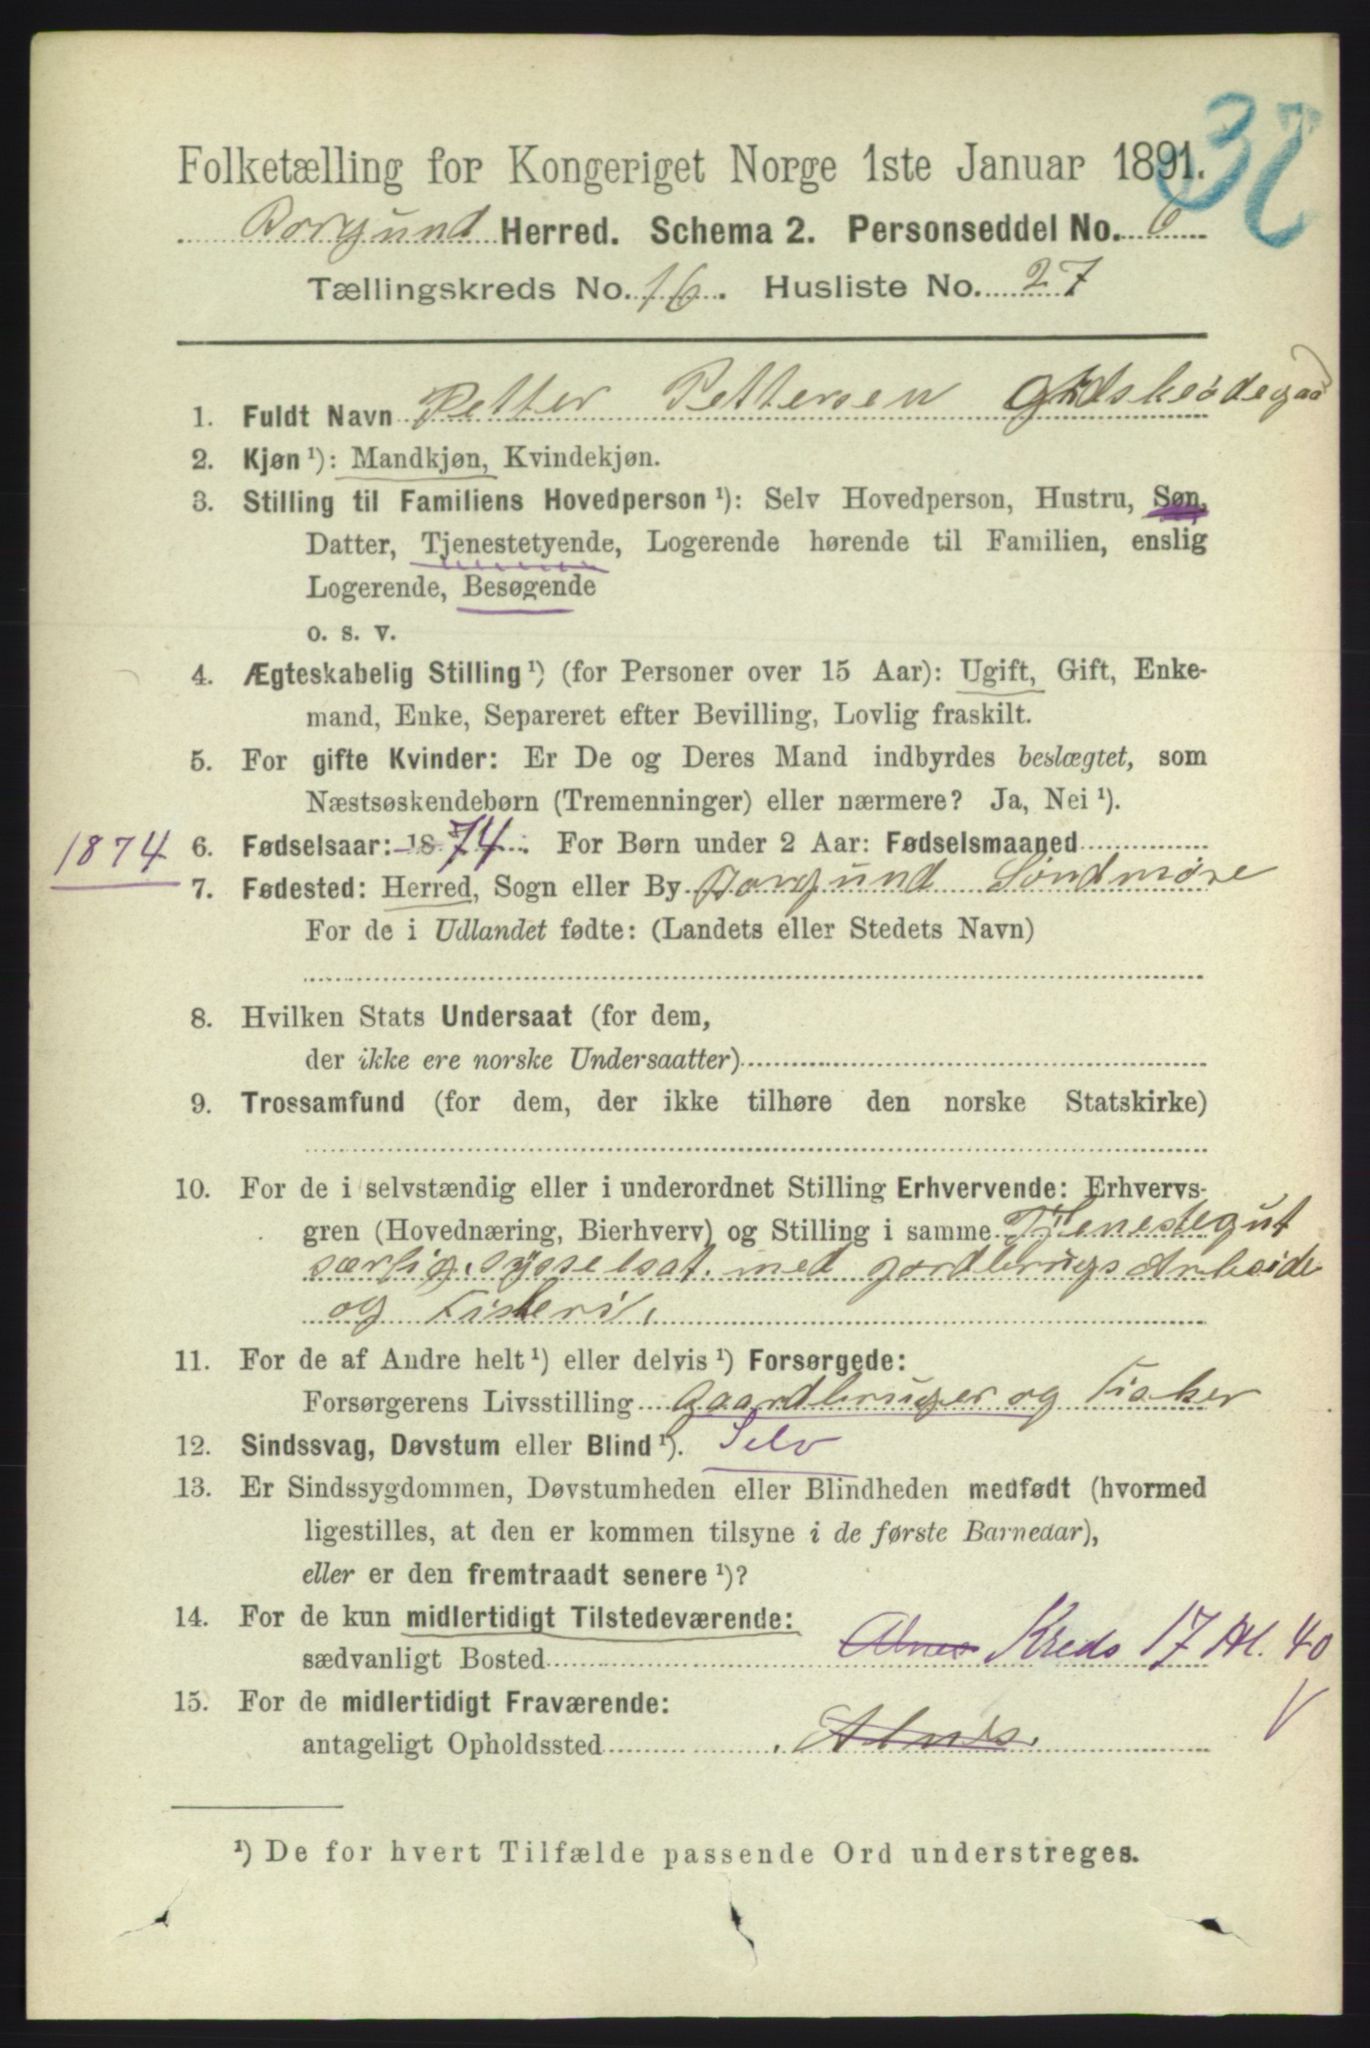 32
Folketælling for Kongeriget Norge 1ste Januar 1891.
Borgund Herred. Schema 2. Personseddel No. 6
Tællingskreds No. 16. Husliste No. 27
1. Fuldt Navn Petter Pettersen
2. Kjøn ¹): Mandkjøn, Kvindekjøn.
3. Stilling til Familiens Hovedperson ¹): Selv Hovedperson, Hustru, Søn,
Datter, Tjenestetyende, Logerende hørende til Familien, enslig
Logerende, Besøgende
o. s. v.
4. Ægteskabelig Stilling ¹) (for Personer over 15 Aar): Ugift, Gift, Enke-
mand, Enke, Separeret efter Bevilling, Lovlig fraskilt.
5. For gifte Kvinder: Er De og Deres Mand indbyrdes beslægtet, som
Næstsøskendebørn (Tremenninger) eller nærmere? Ja, Nei ¹).
1874 6. Fødselsaar: 1874. For Børn under 2 Aar: Fødselsmaaned
7. Fødested: Herred, Sogn eller By Borgund Søndmøre
For de i Udlandet fødte: (Landets eller Stedets Navn)
8. Hvilken Stats Undersaat (for dem,
der ikke ere norske Undersaatter)
9. Trossamfund (for dem, der ikke tilhøre den norske Statskirke)
10. For de i selvstændig eller i underordnet Stilling Erhvervende: Erhvervs-
gren (Hovednæring, Bierhverv) og Stilling i samme Tjenestegut
særlig sysselsat med gardbrugs Arbeide
og Fiskeri.
11. For de af Andre helt ¹) eller delvis ¹) Forsørgede:
Forsørgerens Livsstilling Gaardbruger og Fisker
12. Sindssvag, Døvstum eller Blind ¹). Selv
13. Er Sindssygdommen, Døvstumheden eller Blindheden medfødt (hvormed
ligestilles, at den er kommen tilsyne i de første Barneaar),
eller er den fremtraadt senere ¹)?
14. For de kun midlertidigt Tilstedeværende:
sædvanligt Bosted Alnes Kreds 17 Hl. 40
15. For de midlertidigt Fraværende:
antageligt Opholdssted Alnes.
¹) De for hvert Tilfælde passende Ord understreges.